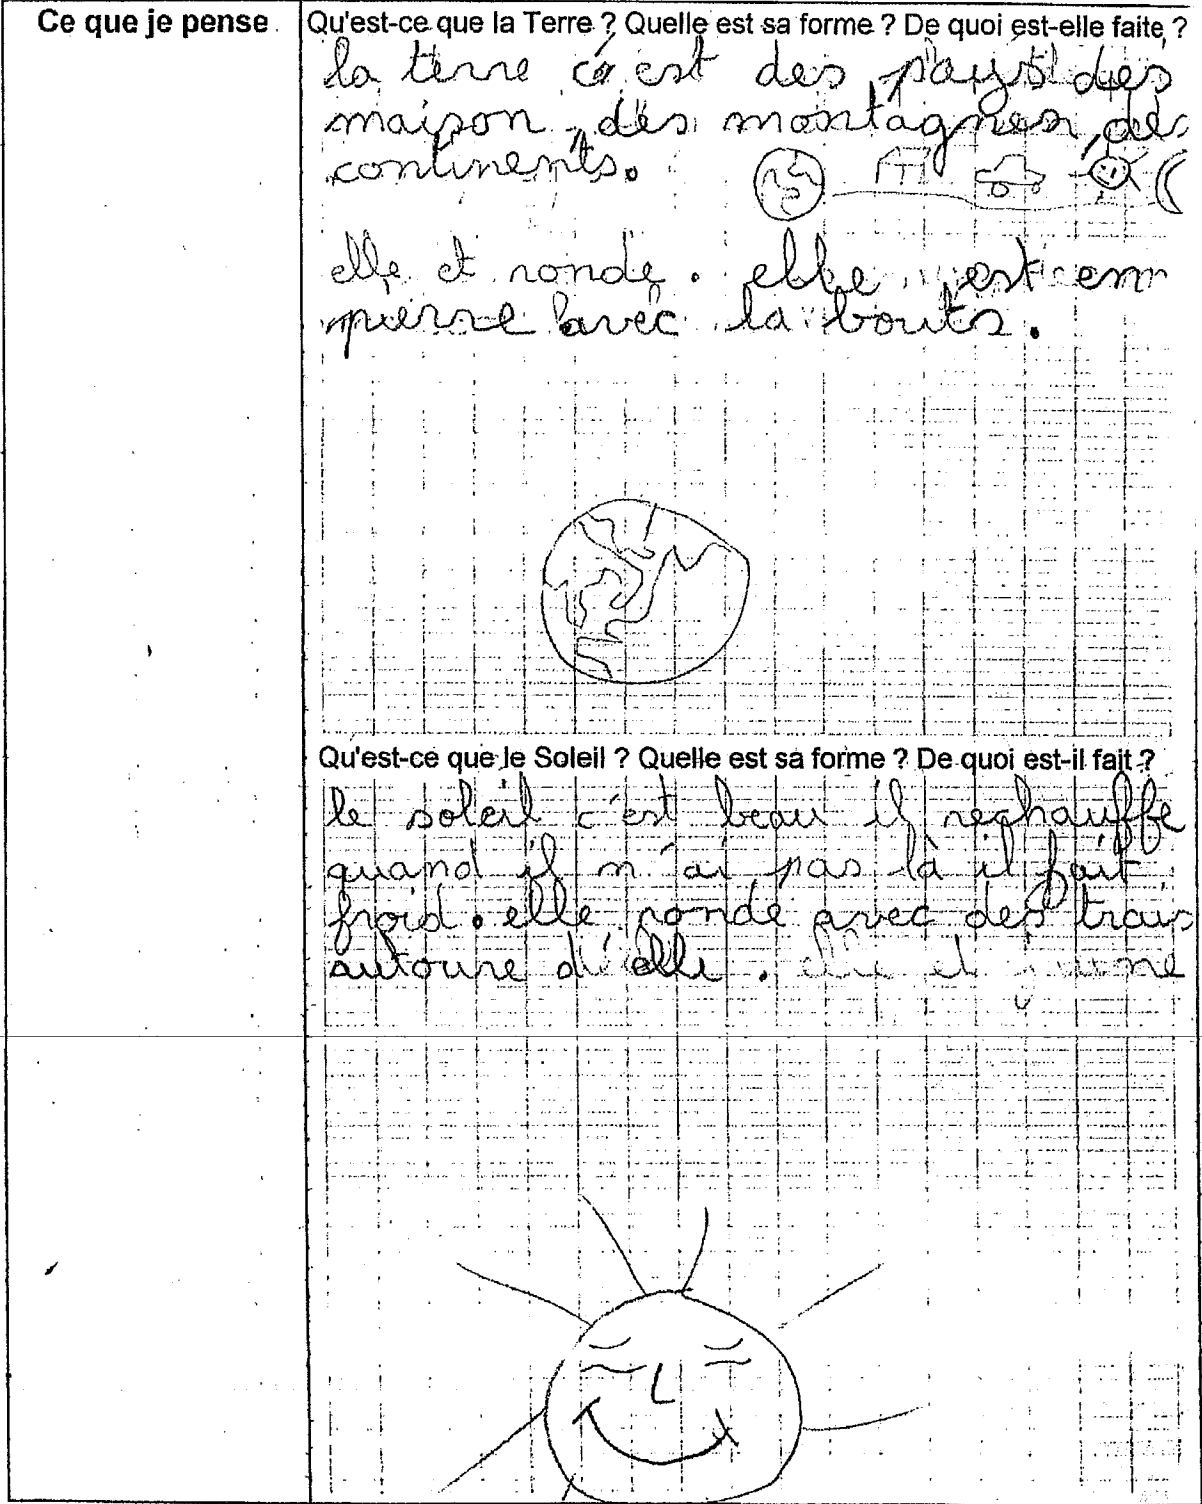 Ce que je pense
Qu'est-ce que la Terre ? Quelle est sa forme ? De quoi est-elle faite ?
la terre c'est des pays des
maison, des montagnes, des
continents.
elle et ronde. elle est en
pierre avec la bouts.
Qu'est-ce que le Soleil ? Quelle est sa forme ? De quoi est-il fait ?
le soleil c'est beau il rechauffe
quand il n'ai pas là il fait
froid. elle ronde avec des trais
autoure d'elle. elle et jaune